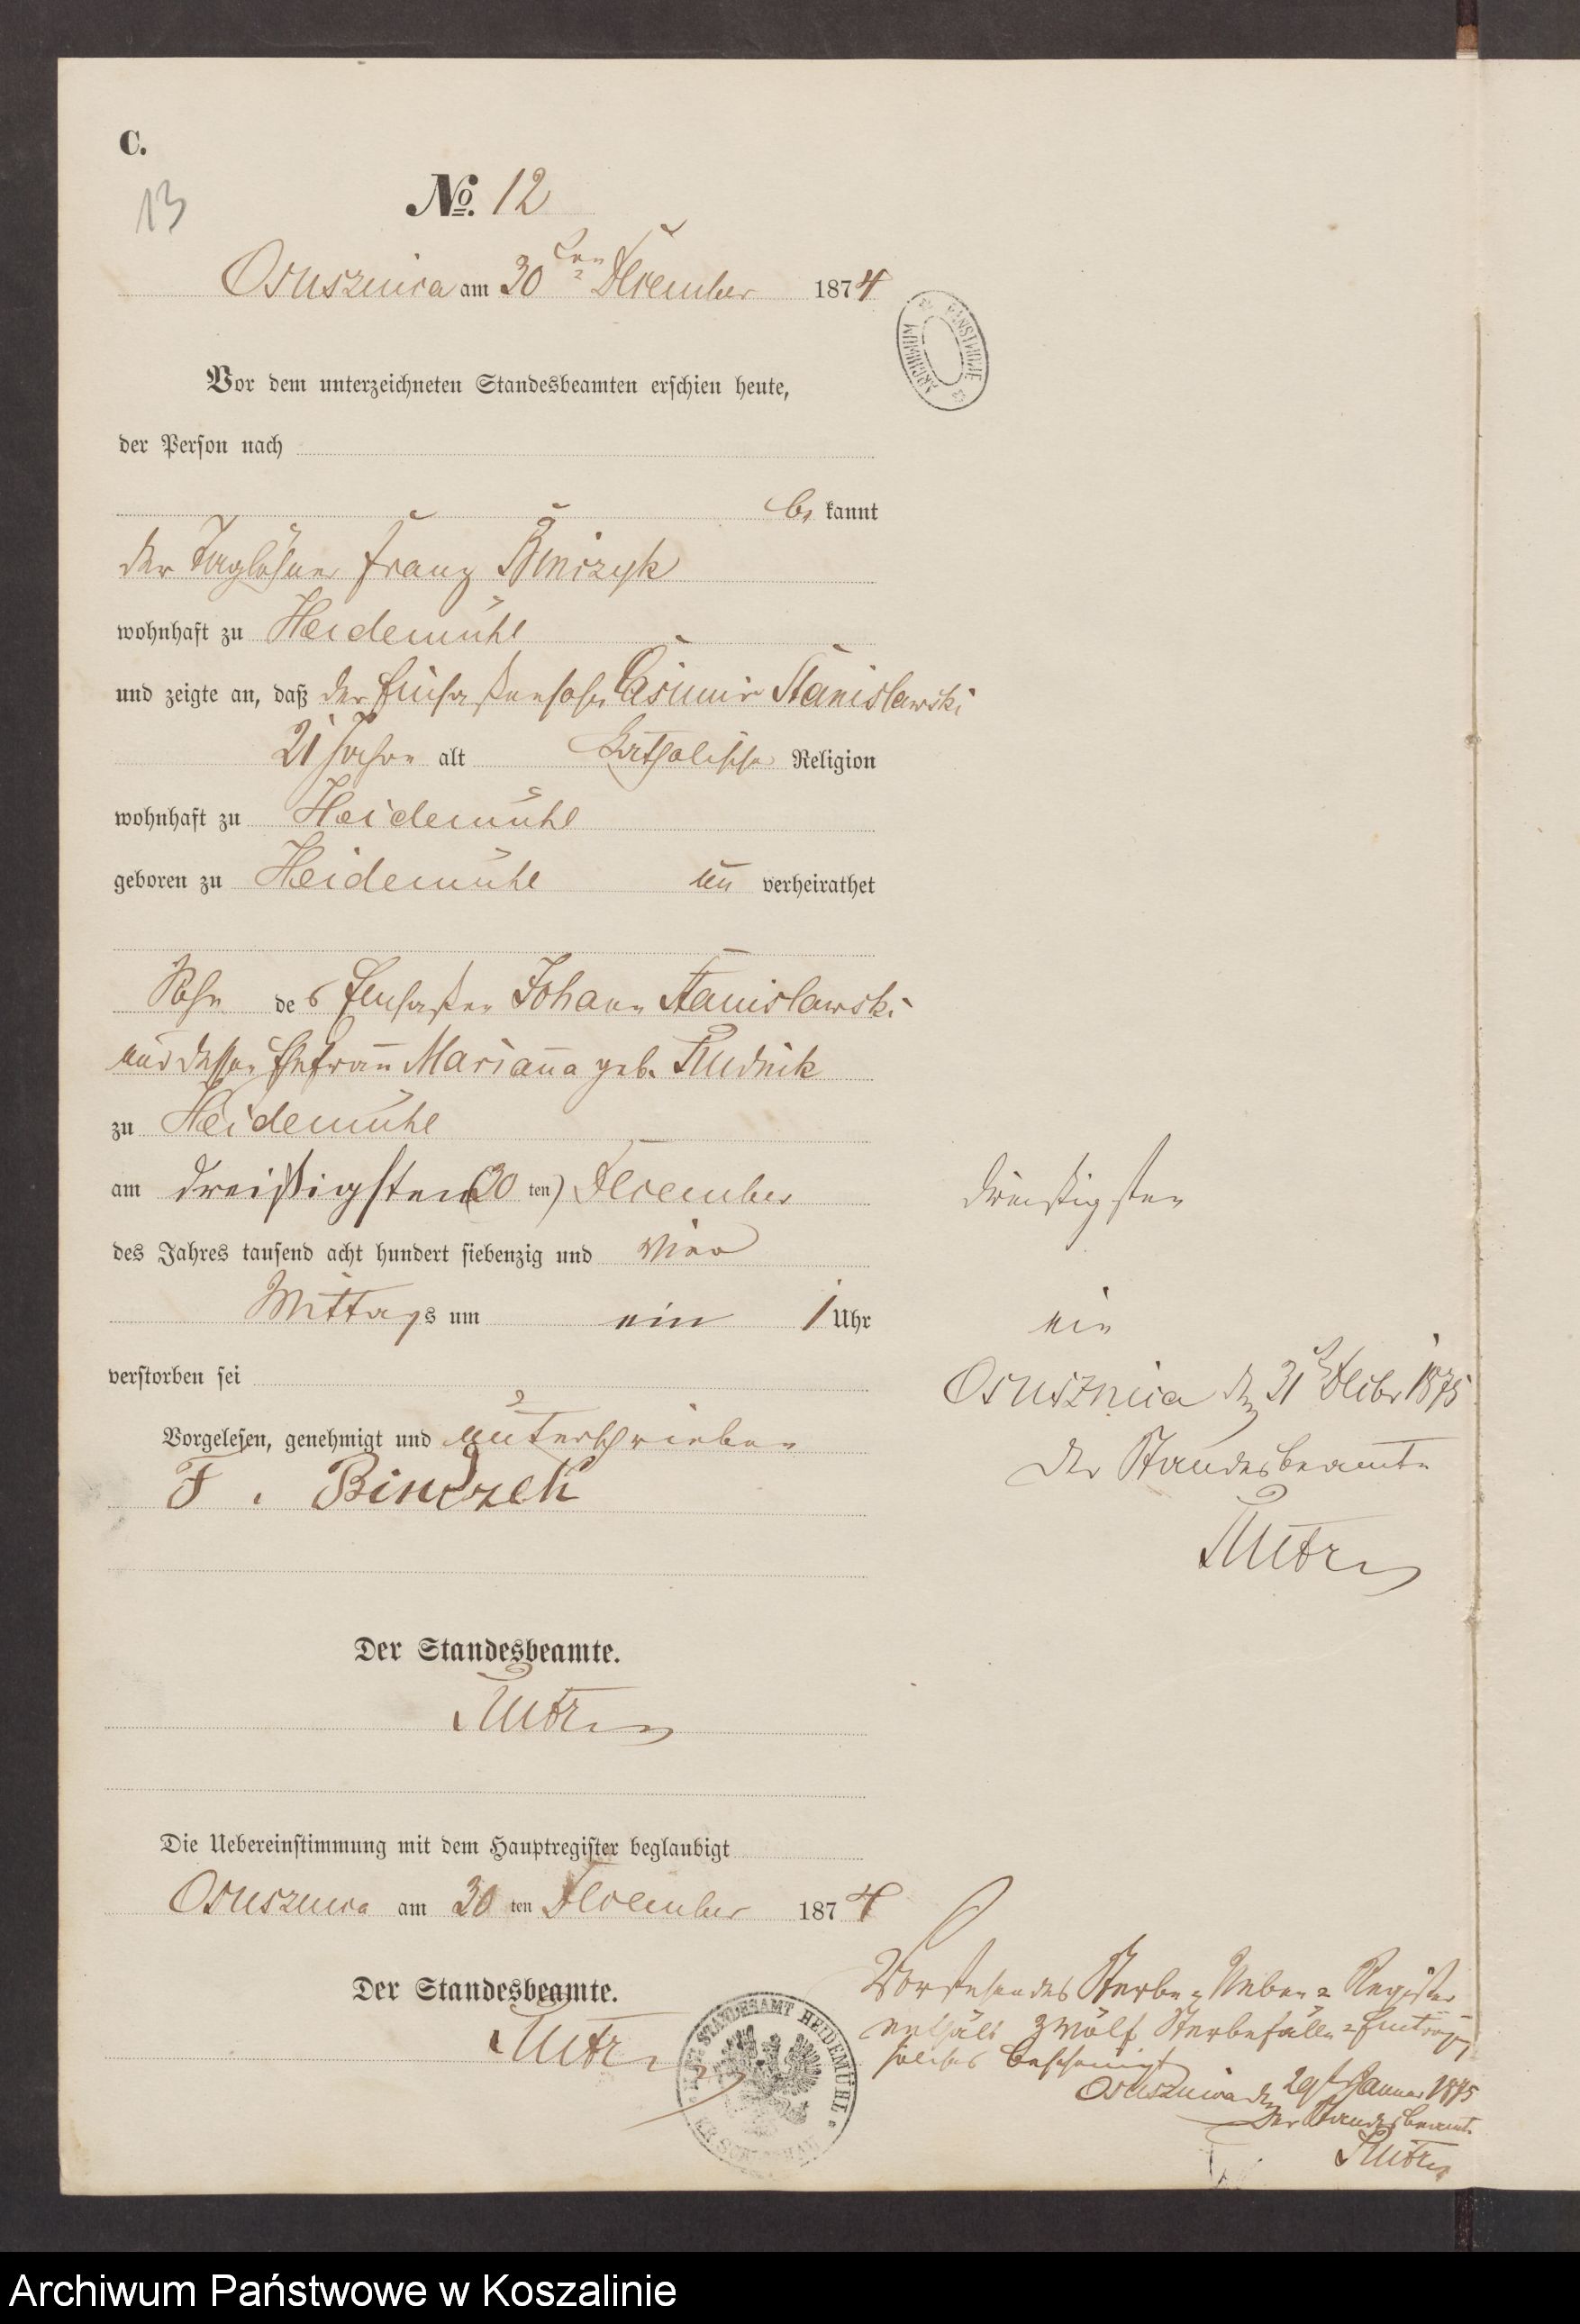 C.
13
No. 12
Osusznica am 30ten December 1874
Vor dem unterzeichneten Standesbeamten erschien heute,
der Person nach
be kannt
der Taglöhner Franz Binczyk
wohnhaft zu Heidemühl
und zeigte an, daß der Einsaßensohn Casimir Stanislawski
21 Jahre alt Katholischer Religion
wohnhaft zu Heidemühl
geboren zu Heidemühl un verheirathet
Sohn des Einsaßen Johann Stanislawski
und dessen Ehefrau Marianna geb. Rudnik
zu Heidemühl
am dreißigsten (30 ten) December
des Jahres tausend acht hundert siebenzig und vier
Mittags um ein 1 Uhr
verstorben sei
Vorgelesen, genehmigt und unterschrieben
F. Binczek
Der Standesbeamte.
Die Uebereinstimmung mit dem Hauptregister beglaubigt
Osusznica am 30 ten December 1874
Der Standesbeamte.
STANDESAMT HEIDEMÜHL
dreißigsten
ein
Osusznica den 31 Decbr 1875
Der Standesbeamte
Vorstehendes Sterbe-Neben-Register
enthält zwölf Sterbefälle-Eintrag
solches bescheinigt
Osusznica den 29t Januar 1875
Der Standesbeamte
ARCHIWUM PAŃSTWOWE
Archiwum Państwowe w Koszalinie